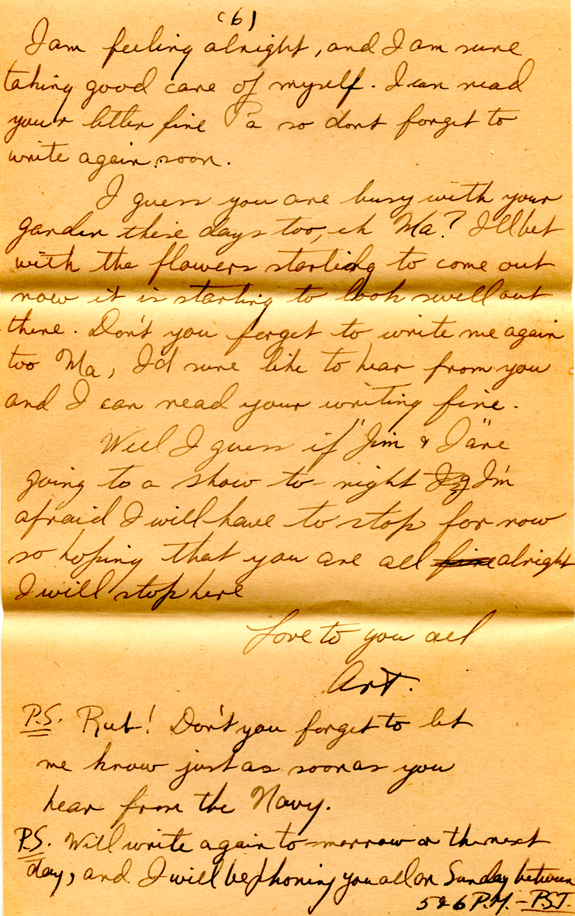 (6)
I am feeling alright, and I am sure
taking good care of myself. I can read
your letter fine Pa so dont forget to
write again soon.
I guess you are busy with your
garden these days too, eh Ma? I'll bet
with the flowers starting to come out
now it is starting to look swell out
there. Don't you forget to write me again
too Ma, I'd sure like to hear from you
and I can read your writing fine.
Well I guess if "Jim & I" are
going to a show to night I'm
afraid I will have to stop for now
so hoping that you are all fine alright
I will stop here
Love to you all
Art.
P.S. Rut! Don't you forget to let
me know just as soon as you
hear from the Navy.
P.S. Will write again to morrow or the next
day, and I will be phoning you all on Sunday between
5 & 6 P.M. - P.S.T.